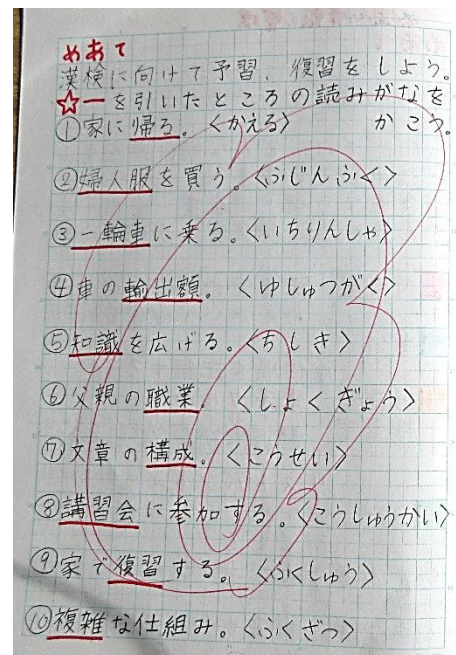 めあて
漢検に向けて予習、復習をしよう。
☆ーを引いたところの読みがなを
かこう。
①家に帰る。〈かえる〉
②婦人服を買う。〈ふじんふく〉
③一輪車に乗る。〈いちりんしゃ〉
④車の輸出額。〈ゆしゅつがく〉
⑤知識を広げる。〈ちしき〉
⑥父親の職業。〈しょくぎょう〉
⑦文章の構成。〈こうせい〉
⑧講習会に参加する。〈こうしゅうかい〉
⑨家で復習する。〈ふくしゅう〉
⑩複雑な仕組み。〈ふくざつ〉